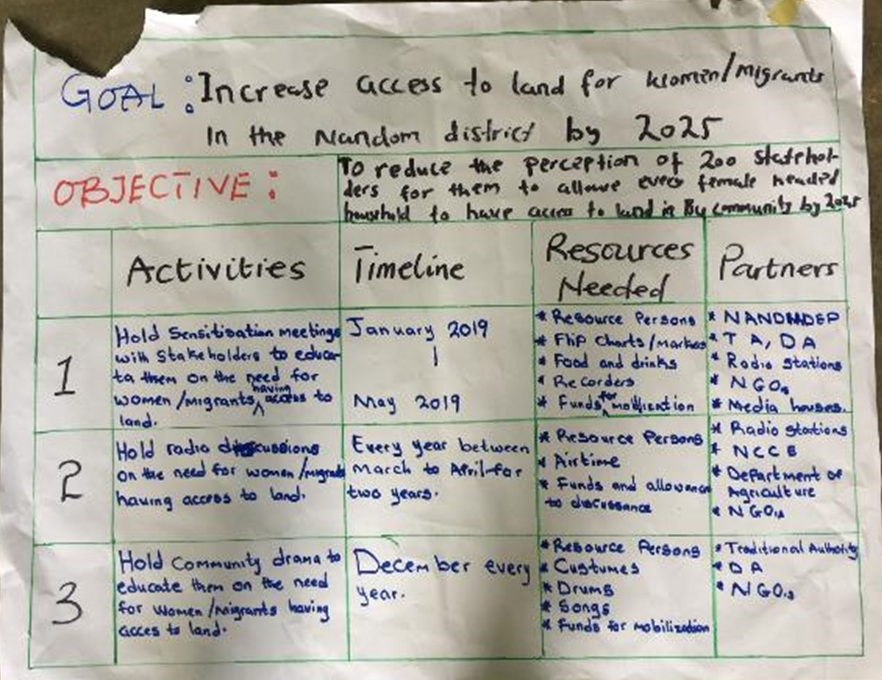 GOAL: Increase access to land for women/migrants
In the Nandom district by 2025
OBJECTIVE:
To reduce the perception of 200 stakehol-
ders for them to allowe every female headed
household to have acces to land in By community by 2025
Activities
Timeline
Resources
Needed
Partners
1
Hold Sensitisation meetings
with Stakeholders to educa-
te them on the need for
women/migrants having access to
land.
January 2019
|
May 2019
* Resource Persons
* Flip Charts/markers
* Food and drinks
* Recorders
* Funds for mobilization
* NANDMDEP
* T A, DA
* Radio stations
* NGOs
* Media houses.
2
Hold radio discussions
on the need for women/migrants
having access to land.
Every year between
March to April for
two years.
* Resource Persons
* Airtime
* Funds and allowance
to discussance
* Radio stations
* NCCE
* Department of
Agriculture
* NGOs
3
Hold Community drama to
educate them on the need
for women/migrants having
acces to land.
December every
year.
* Resource Persons
* Custumes
* Drums
* Songs
* Funds for mobilization
* Traditional Authority
* DA
* NGO,s